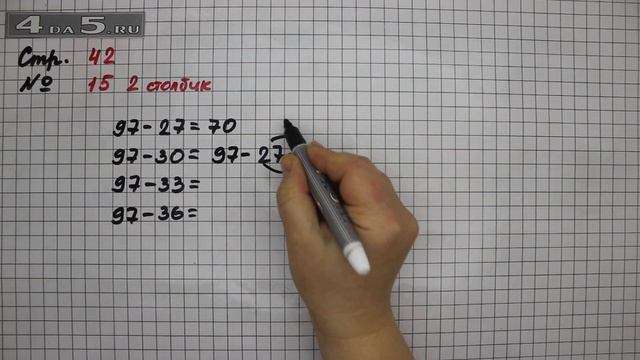 4 DA 5.RU
Стр. 42
№ 15 2 столбик
97-27=70
97-30= 97-27
97-33=
97-36=